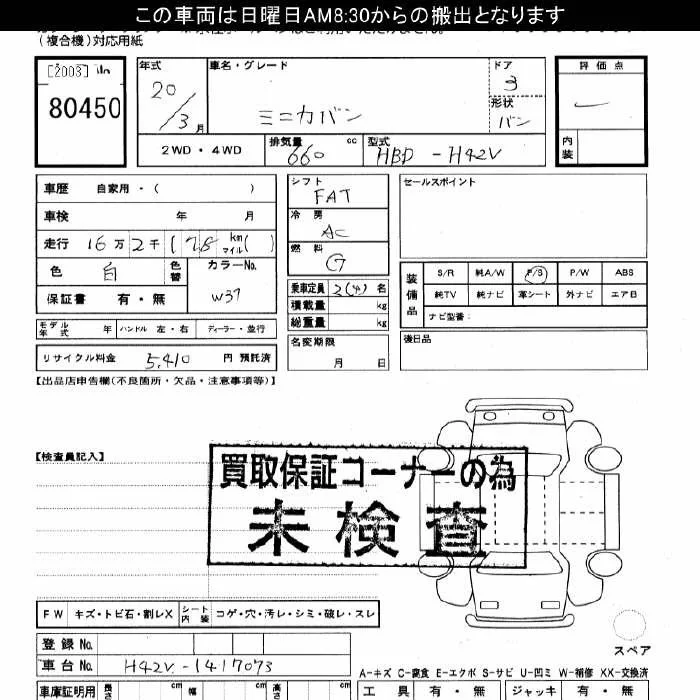 この車両は日曜日AM8:30からの搬出となります
(複合機)対応用紙
[2003]
80450
年式 車名・グレード ドア 評価点
20/3月 ミニカバン 3
形状 バン
2WD・4WD 排気量 660 cc 型式 HBD-H42V 内装
車歴 自家用・( )
車検 年 月
走行 16万2千178 km マイル( )
色 白 色替 カラーNo. W37
保証書 有・無
シフト FAT
冷房 AC
燃料 G
セールスポイント
乗車定員 2(4)名
積載量 kg
総重量 kg
装備品 S/R 純A/W P/S P/W ABS
純TV 純ナビ 革シート 外ナビ エアB
ナビ型番:
モデル年式 年 ハンドル 左・右 ディーラー・並行
リサイクル料金 5,410 円 預託済
名変期限 月 日
後日品
【出品店申告欄(不良箇所・欠品・注意事項等)】
【検査員記入】
買取保証コーナーの為
未検査
FW キズ・トビ石・割レX シート内装 コゲ・穴・汚レ・シミ・破レ・スレ
登録No.
スペア
車台No. H42V-1417073
A-キズ C-腐食 E-エクボ S-サビ U-凹ミ W-補修 XX-交換済
車庫証明用 長さ cm 幅 cm 高さ cm 工具 有・無 ジャッキ 有・無